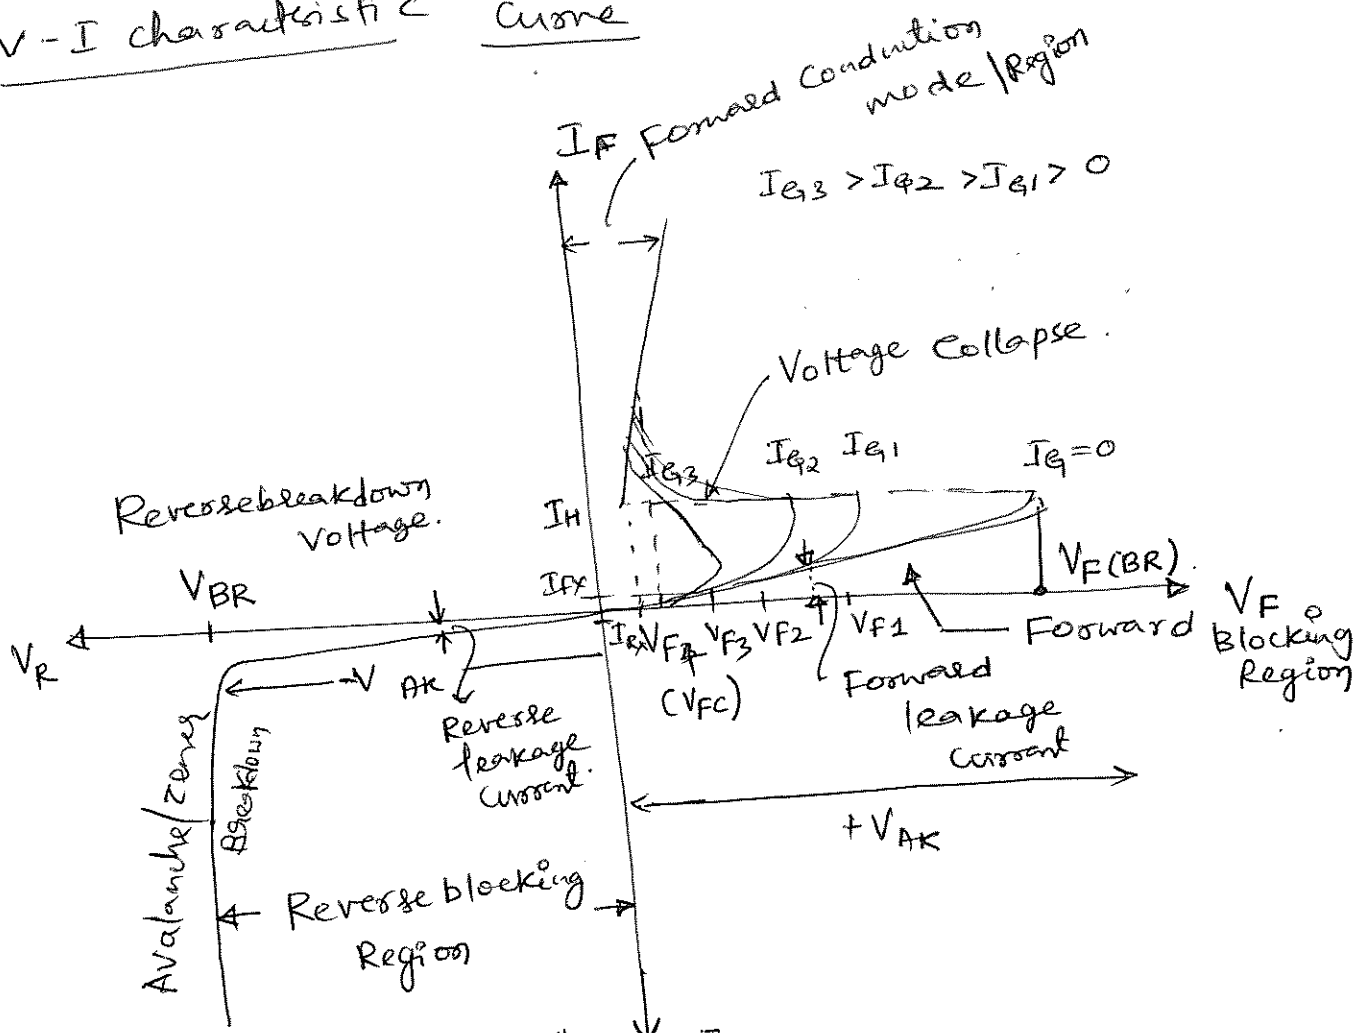 V - I characteristic Curve
IF
Forward Conduction
mode/Region
IG3 > IG2 > IG1 > 0
Voltage Collapse.
IG3
IG2
IG1
IG=0
Reversebreakdown
Voltage.
IH
VBR
IFX
VF(BR).
VR
VF3
VF2
VF1
VF
(VFC)
Forward Blocking
Region
-VAK
Reverse
leakage
current.
Forward
leakage
current
+VAK
Avalanche/zener
Breakdown
Reverse blocking
Region